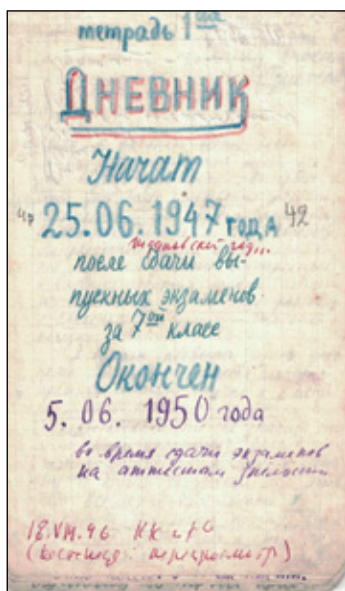 тетрадь 1ая
ДНЕВНИК
Начат
25.06.1947 года 42
после сдачи вы-
пускных экзаменов
за 7ой класс
Окончен
5.06.1950 года
во время сдачи экзаменов
на аттестат зрелости